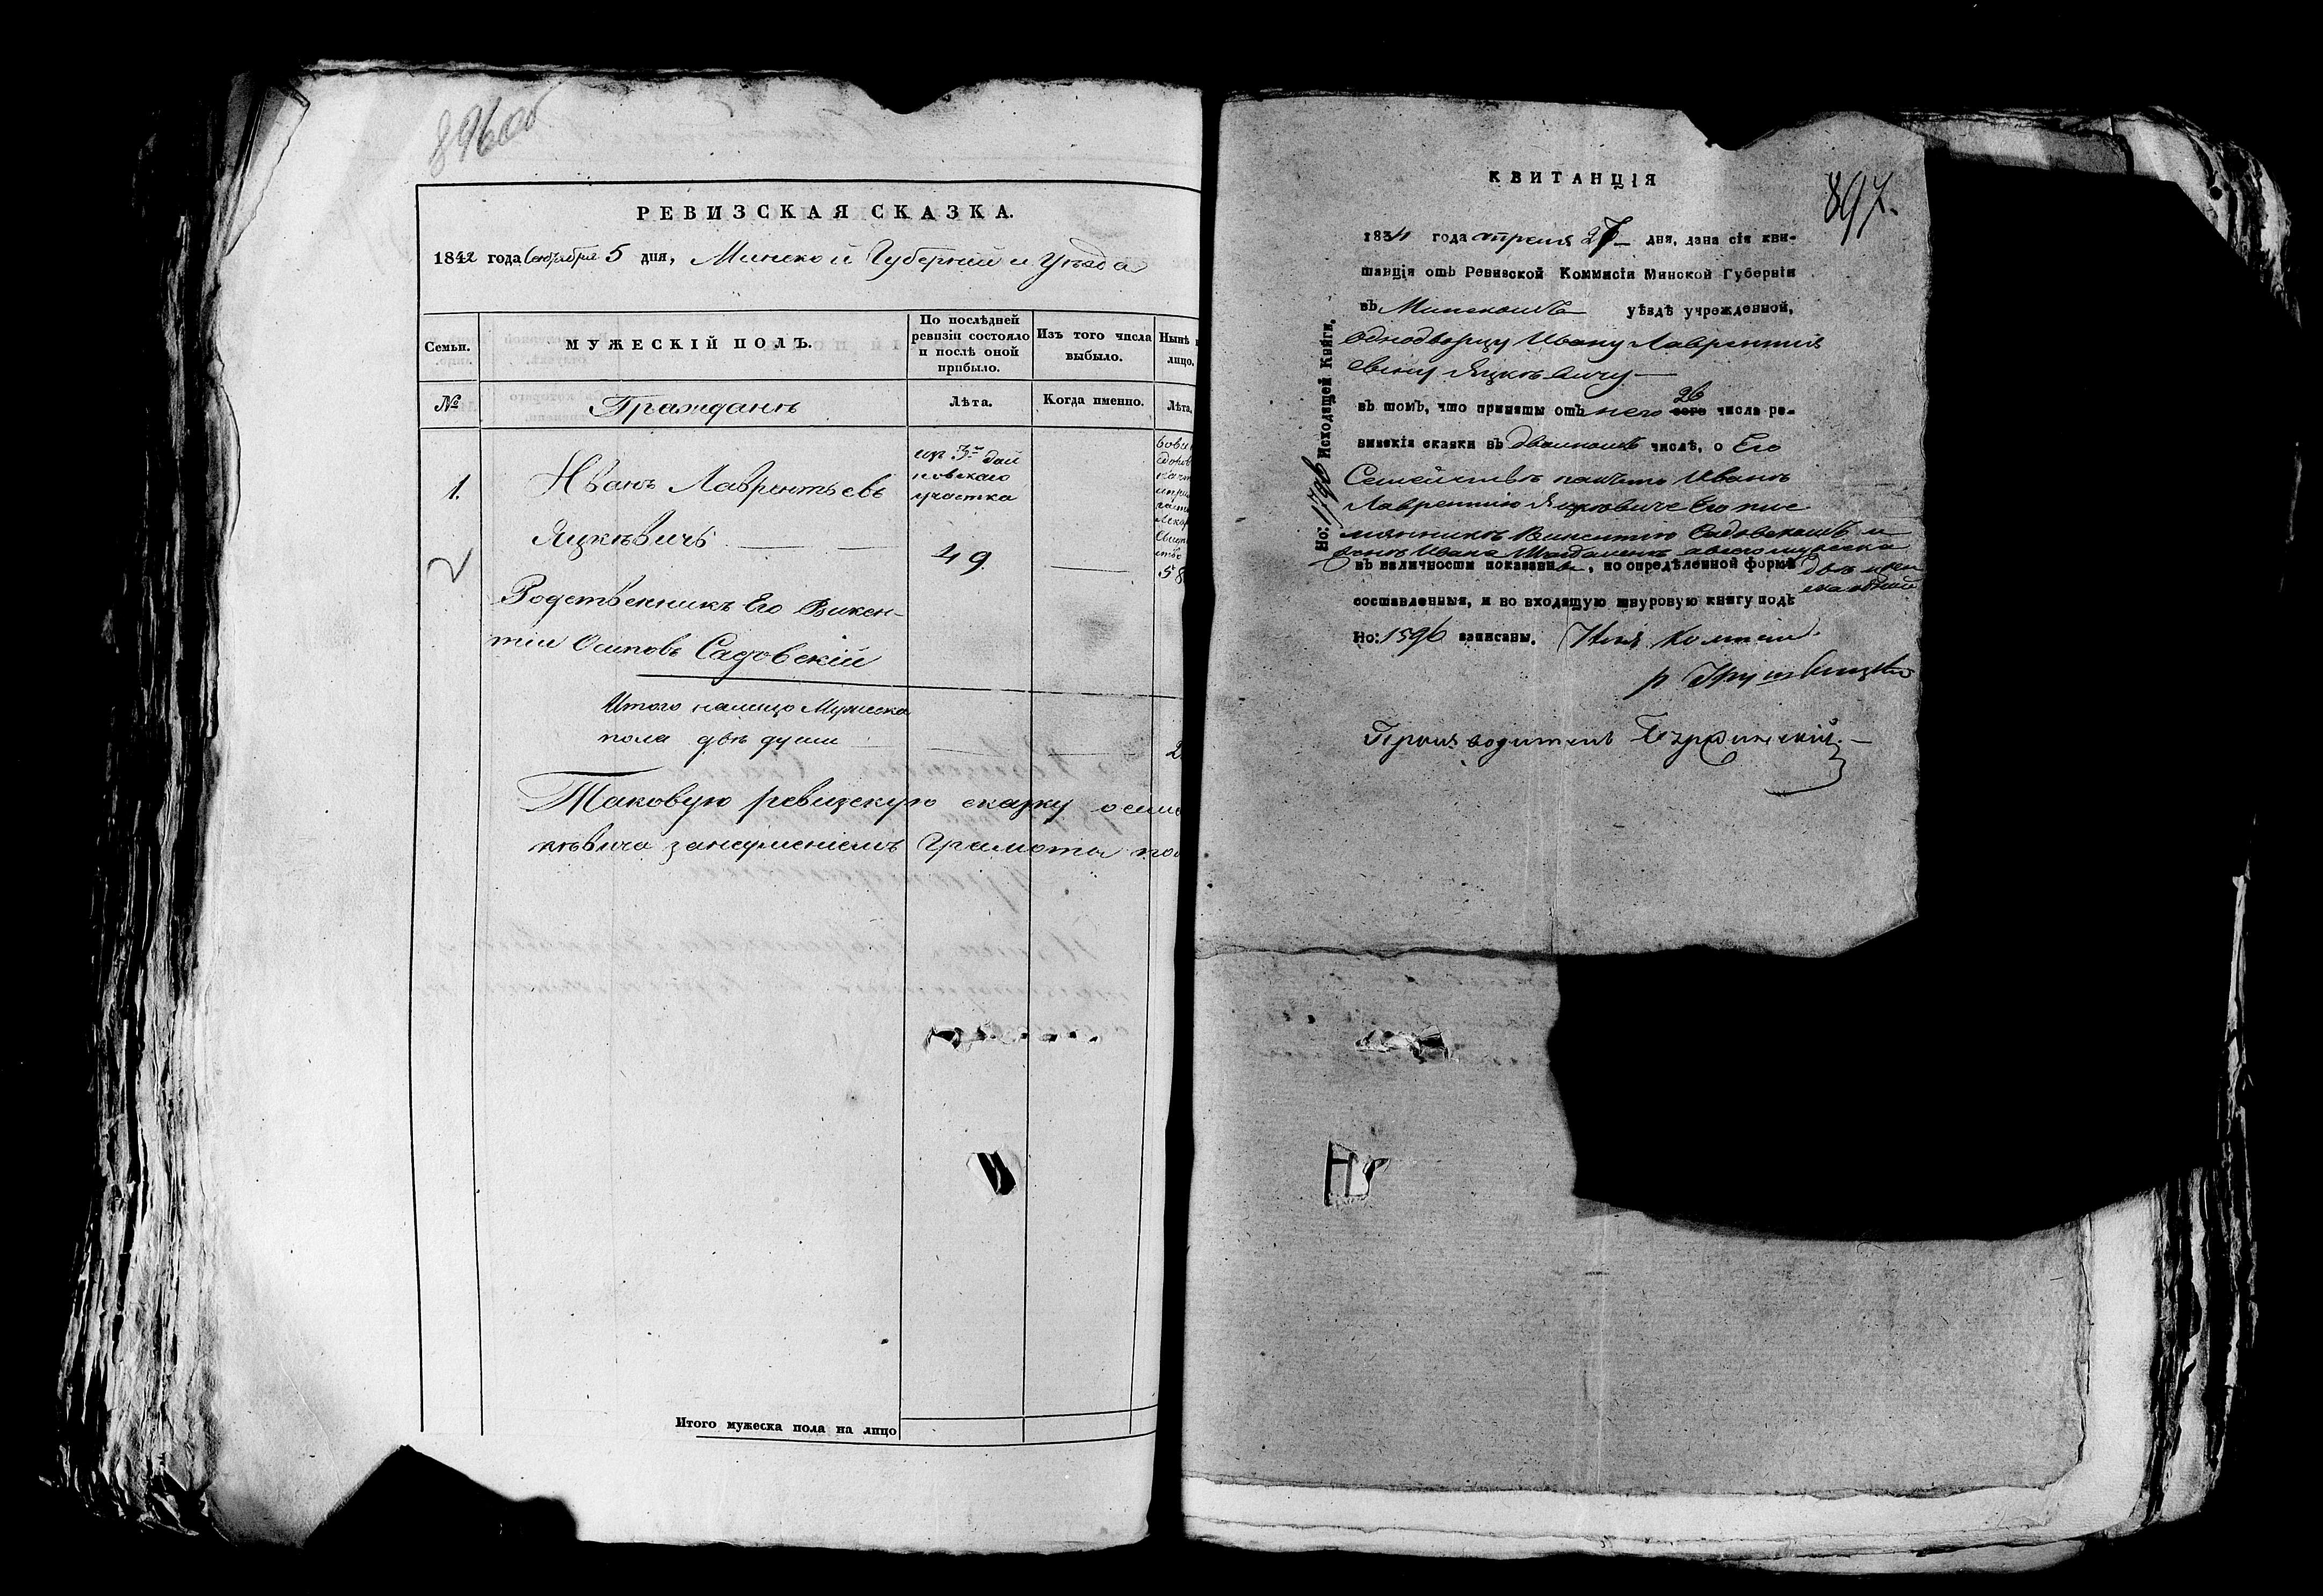 896 об
РЕВИЗСКАЯ СКАЗКА.
1842 года Сентября 5 дня, Минской Губернии и Уѣзда
Семьи.
МУЖЕСКІЙ ПОЛЪ.
По послѣдней ревизіи состояло и послѣ оной прибыло.
Изъ того числа выбыло.
Нынѣ
лицо.
№
Гражданъ
Лѣта.
Когда именно.
Лѣта.
1.
Иванъ Лаврентьевъ
Яцкѣвичъ
участка
49
58
2
Родственникъ Его Викен-
тій Осиповъ Садовскій
Итого налицо Мужеска
пола двѣ души
2
Таковую ревизскую сказку
кѣвича занеумѣніемъ Грамоты
Итого мужеска пола на лицо
897.
КВИТАНЦІЯ
1834 года апреля 27 дня, дана сія кви-
танція отъ Ревизской Коммисіи Минской Губерніи
въ Минскомъ уѣздѣ учрежденной,
однодворцу Ивану Лаврентія
евичу Яцкѣвичу
въ томъ, что приняты отъ него 26 сего числа ре-
визскія сказки въ двойномъ числѣ, о Его
Семействѣ Иванъ
Лаврентію Яцкевиче Его пле
мянникъ Викентію Садовскомъ и
женѣ Ивана Магдаленѣ
въ наличности показанны, по опредѣленной формѣ
составленныя, и во входящую шнуровую книгу подъ
Но: 1596 записаны.
Производитель
Но: 1796 Исходящей Книги.